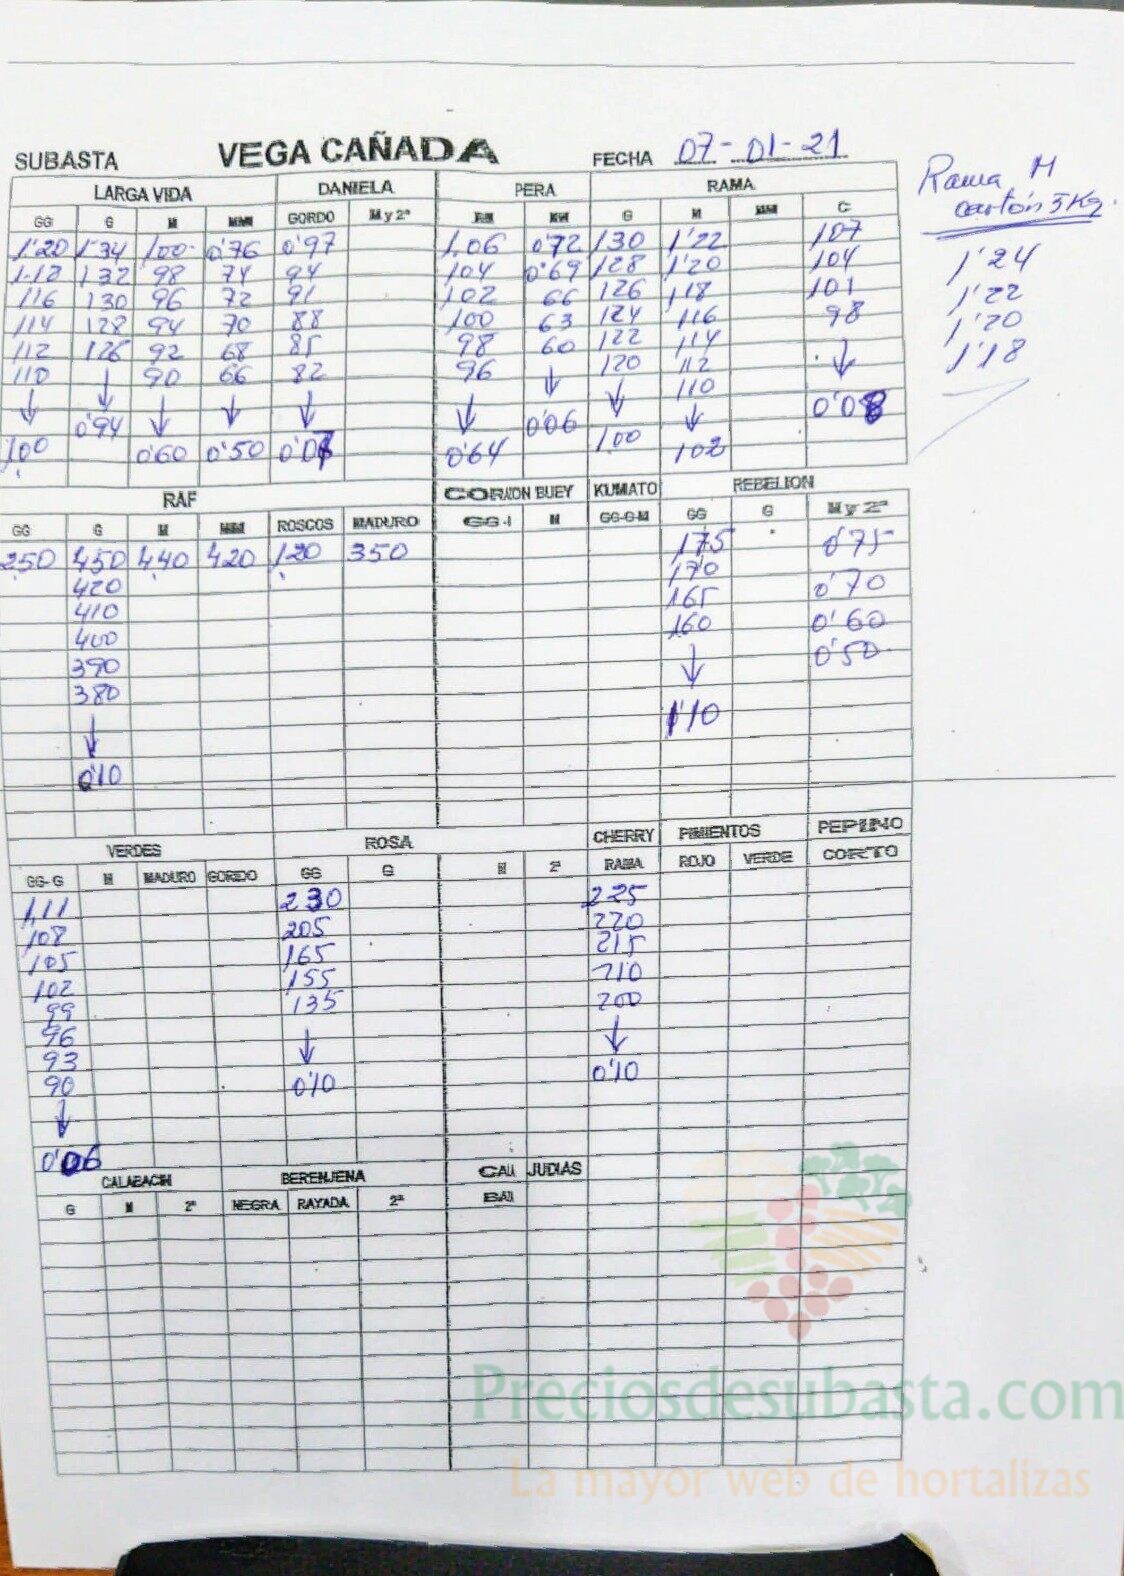 SUBASTA VEGA CAÑADA FECHA 07-01-21
LARGA VIDA DANIELA PERA RAMA
GG G M MM GORDO M y 2ª MM G M MM C
1'20 1'34 100 0'76 0'97 1,06 0'72 130 1'22 107
1'18 132 98 74 94 104 0'69 128 1'20 104
116 130 96 72 91 102 66 126 118 101
114 128 94 70 88 100 63 124 116 98
112 126 92 68 85 98 60 122 114 ↓
110 ↓ 90 66 82 96 ↓ 120 112 0'08
↓ 0'94 ↓ ↓ ↓ ↓ 0'06 ↓ 110
100 0'60 0'50 0'64 100 ↓
102
Rama M
cartón 5 Kg.
1'24
1'22
1'20
1'18
RAF CORAZON BUEY KUMATO REBELION
GG G M MM ROSCOS MADURO GG-I M GG-G-M GG G M y 2ª
250 450 440 420 120 350 175 0'75
420 170 0'70
410 165 0'60
400 160 0'50
390 ↓
380 1'10
↓
0'10
VERDES ROSA CHERRY PIMIENTOS PEPINO
GG-G M MADURO GORDO GG G M 2ª RAMA ROJO VERDE CORTO
1,11 230 225
108 205 220
105 165 215
102 155 210
99 135 200
96 ↓ ↓
93 0'10 0'10
90
↓
0'06
CALABACIN BERENJENA CALA JUDIAS
G M 2ª NEGRA RAYADA 2ª
Preciosdesubasta.com
La mayor web de hortalizas